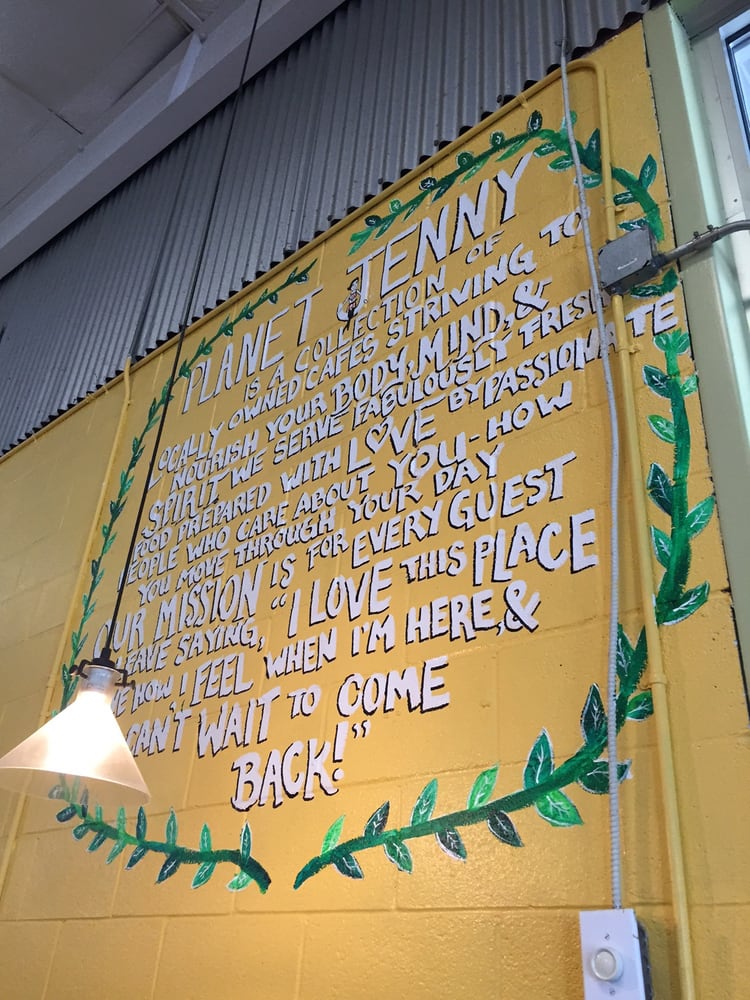 PLANET JENNY
IS A COLLECTION OF
LOCALLY OWNED CAFES STRIVING TO
NOURISH YOUR BODY, MIND, &
SPIRIT WE SERVE FABULOUSLY FRESH
FOOD PREPARED WITH LOVE BY PASSIONATE
PEOPLE WHO CARE ABOUT YOU - HOW
YOU MOVE THROUGH YOUR DAY
OUR MISSION IS FOR EVERY GUEST
LEAVE SAYING, "I LOVE THIS PLACE
HOW I FEEL WHEN I'M HERE, &
CAN'T WAIT TO COME
BACK!"